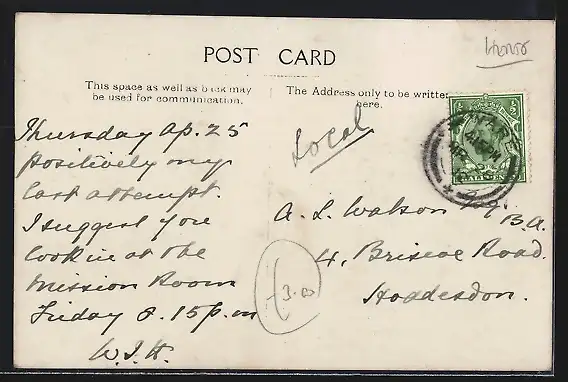 Herts
POST CARD
This space as well as back may
be used for communication.
The Address only to be written
here.
Local
WARE
AP 26
Thursday Ap. 25
Positively my
last attempt.
I suggest you
look in at the
Mission Room
Friday 8.15 p.m
W.J.H.
A. L. Watson Esq. B.A.
4, Briscoe Road.
Hoddesdon.
3.00